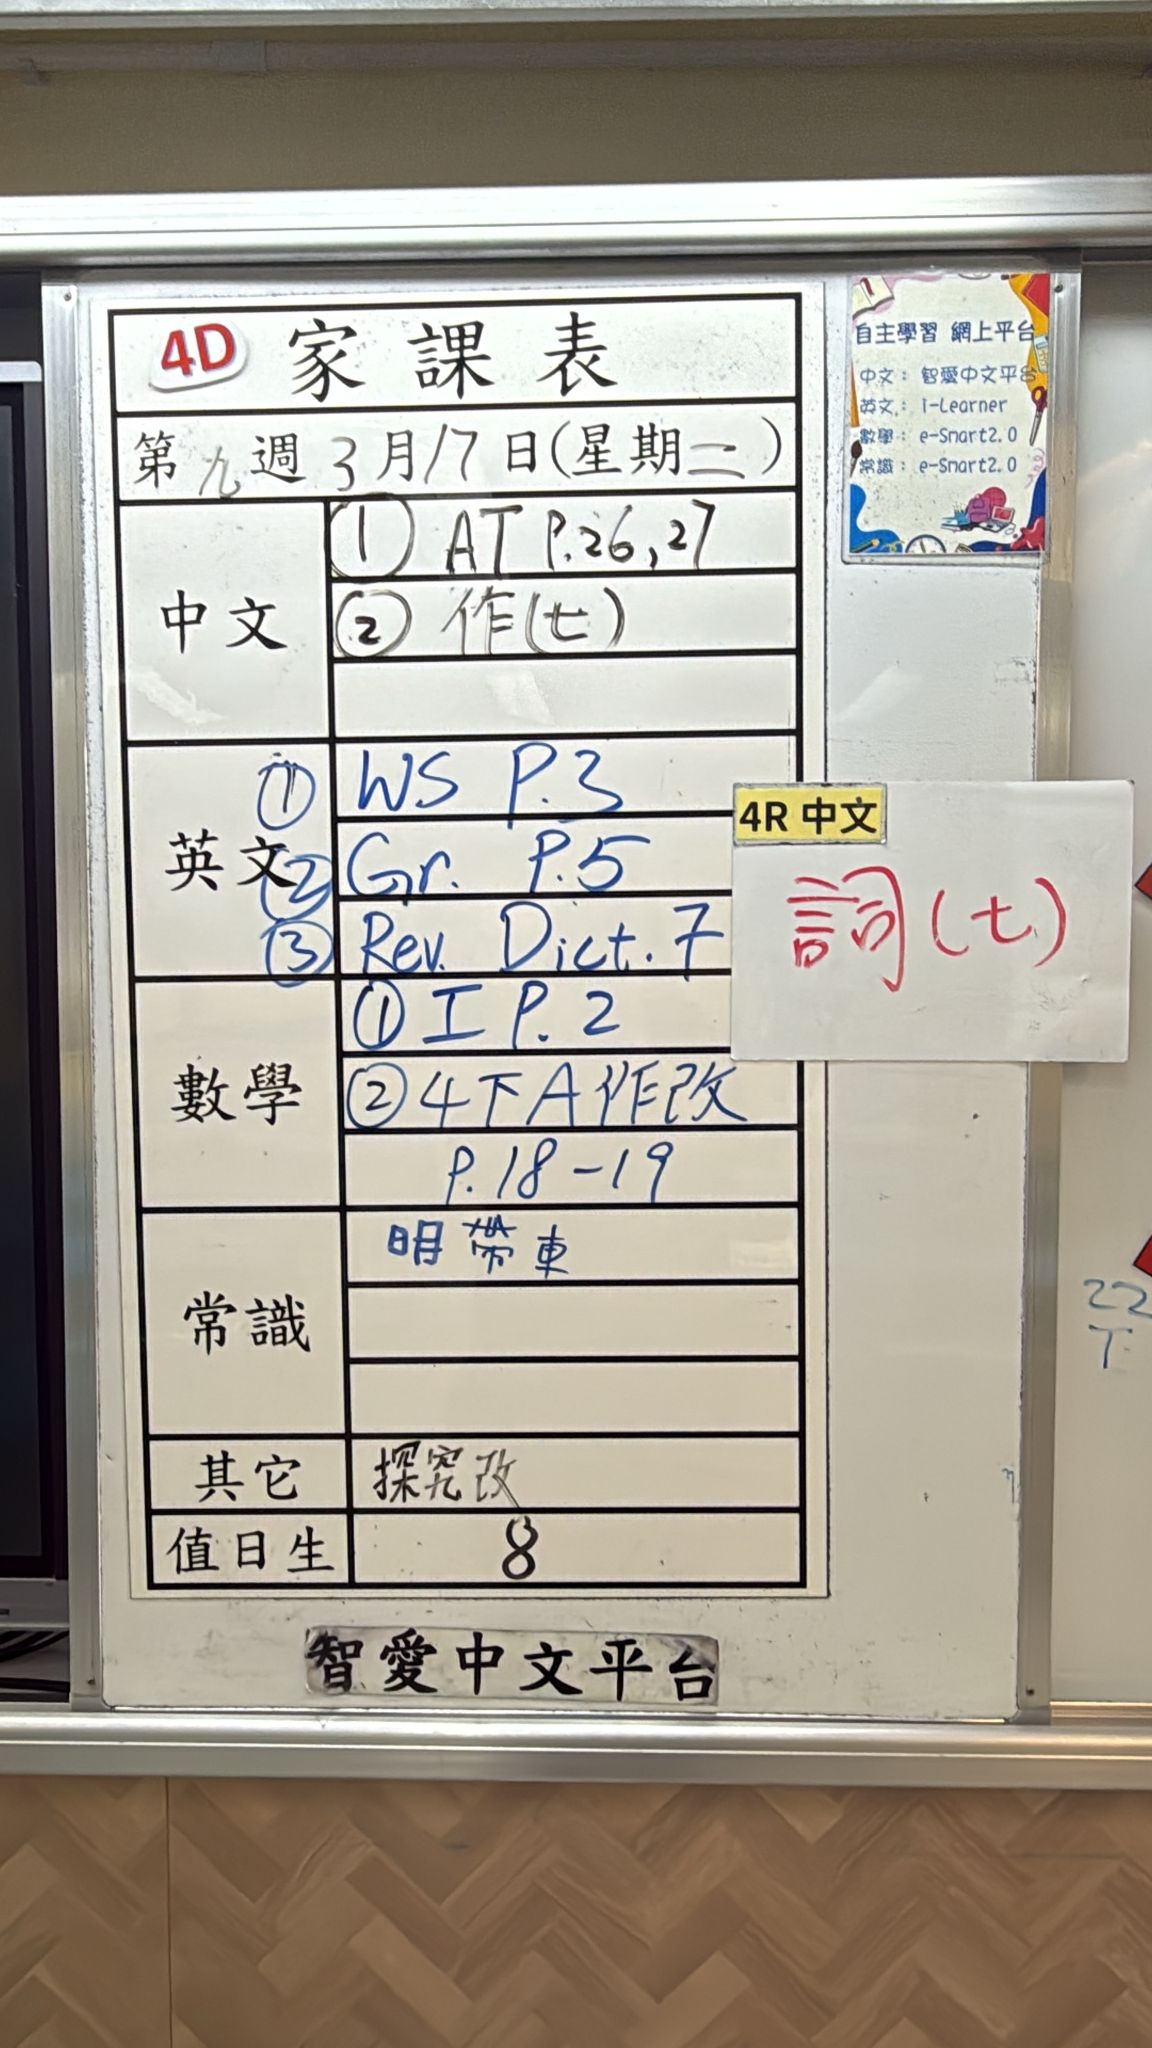 4D 家課表
第九週3月17日(星期二)
中文
① AT P.26,27
② 作(七)
英文
① WS P.3
② Gr. P.5
③ Rev. Dict. 7
數學
① I P. 2
② 4下A作改
P.18-19
常識
明帶車
其它
探究改
值日生
8
智愛中文平台
自主學習 網上平台
中文: 智愛中文平台
英文: i-Learner
數學: e-Smart2.0
常識: e-Smart2.0
4R 中文
詞(七)
22